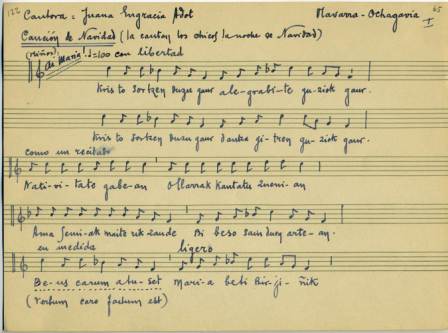 122 Cantora = Juana Engracia Adot Navarra - Ochagavia 65
I
Canción de Navidad (la cantan los chicos la noche de Navidad)
(niños) Ai Maria! ♩=100 con libertad
Kris to Sortzen duzu gaur ale-grabi-te gu-ziek gaur.
Kris to Sortzen duzu gaur dantza gi-ten gu-ziek gaur.
como un recitado
Nati-vi-tate gabe-an Ollarrak Kantatu zueni-an
Ama Semi-ak maite-rik zaude Bi beso Sainduen arte-an.
en medida ligero
Be-us carum atu-set Mari-a beti Bir-ji-ñik
(Verbum caro factum est)